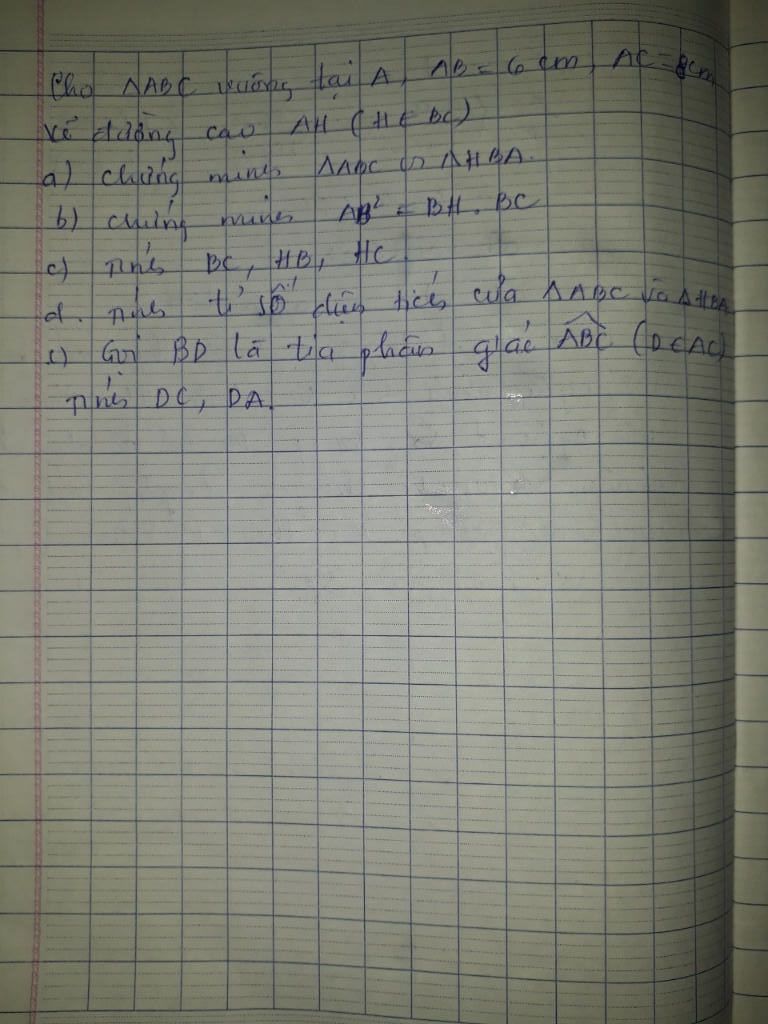 Cho ΔABC vuông tại A, AB = 6 cm, AC = 8cm
Vẽ đường cao AH (H ∈ BC)
a) chứng minh ΔABC ∽ ΔHBA.
b) chứng minh AB² = BH. BC
c) Tính BC, HB, HC
d. Tính tỉ số diện tích của ΔABC và ΔHBA
e) Gọi BD là tia phân giác \widehat{ABC} (D ∈ AC)
Tính DC, DA.